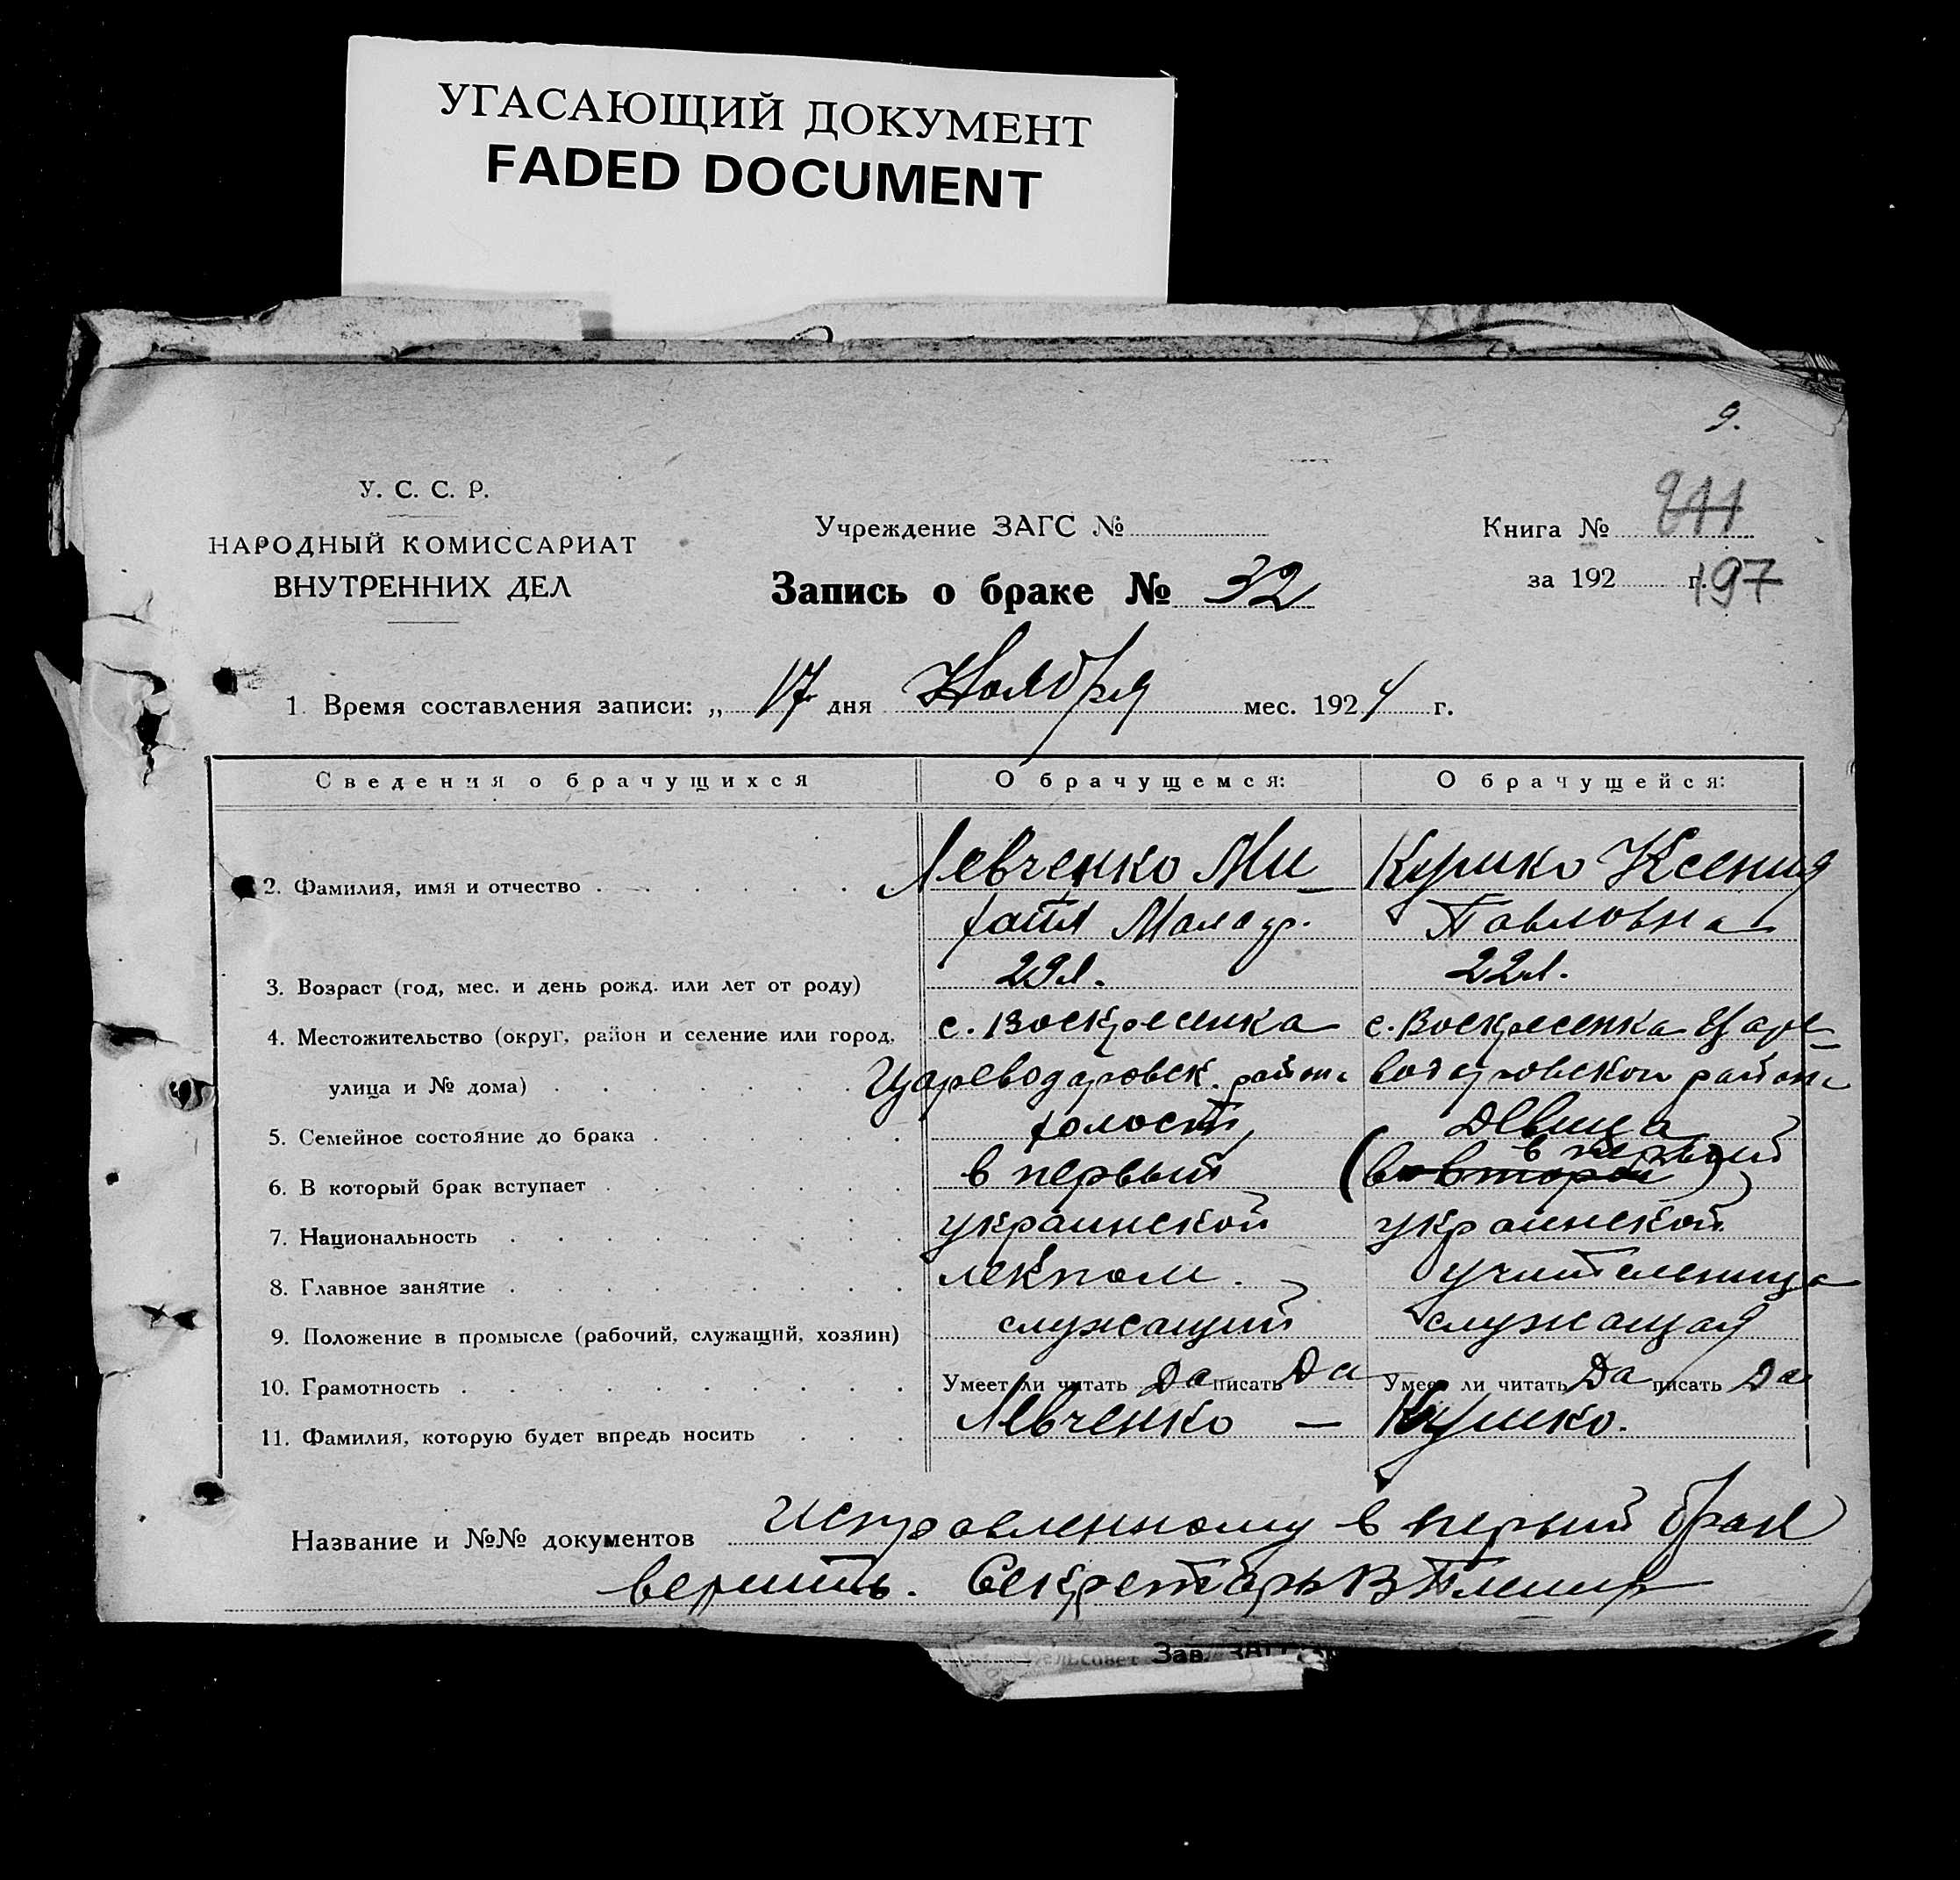 УГАСАЮЩИЙ ДОКУМЕНТ
FADED DOCUMENT
9.
У. С. С. Р.
НАРОДНЫЙ КОМИССАРИАТ
ВНУТРЕННИХ ДЕЛ
Учреждение ЗАГС №
Книга № 211
Запись о браке № 32
за 192 г. 197
1. Время составления записи: „ 17 дня Ноября мес. 1924 г.
Сведения о брачущихся О брачущемся: О брачущейся:
2. Фамилия, имя и отчество Левченко Ми- Кушко Ксения
хаил Павловна
3. Возраст (год, мес. и день рожд. или лет от роду) 29л. 22л.
4. Местожительство (округ, район и селение или город, с. Воскресенка с. Воскресенка Царе-
улица и № дома) Цареводаровск. района водаровского района
5. Семейное состояние до брака холост, Девица
в первый
6. В который брак вступает в первый (во второй)
7. Национальность украинской украинской
8. Главное занятие лекпом. учительница
9. Положение в промысле (рабочий, служащий, хозяин) служащий служащая
10. Грамотность Умеет ли читать Да писать Да Умеет ли читать Да писать Да
11. Фамилия, которую будет впредь носить Левченко — Кушко.
Название и №№ документов Исправленному в первый брак
верить. Секретарь
Сельсовет Зав. ЗАГС